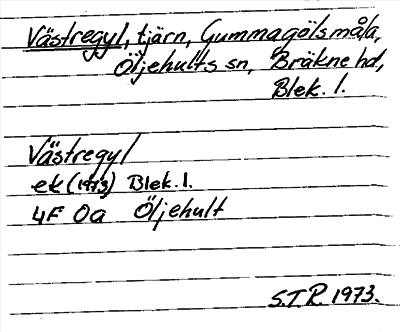 Västregyl, tjärn, Gummagölsmåla,
Öljehults sn, Bräkne hd,
Blek. l.
Västregyl
ek (1973) Blek. l.
4F 0a Öljehult
S.T.R. 1973.